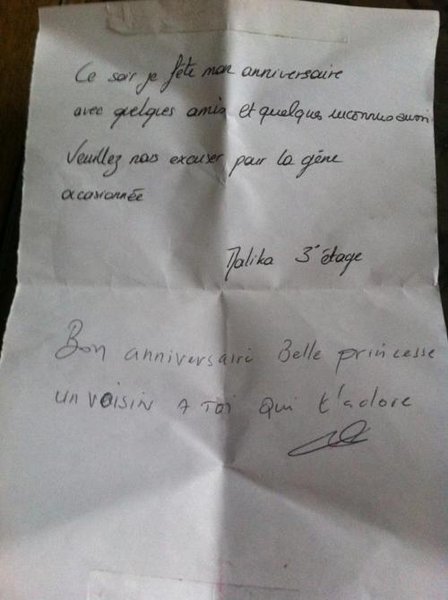 Ce soir je fête mon anniversaire
avec quelques amis et quelques inconnus aussi
Veuillez nous excuser pour la gêne
occasionnée
Malika 3° étage
Bon anniversaire Belle princesse
un VOISIN A TOI qui t'adore